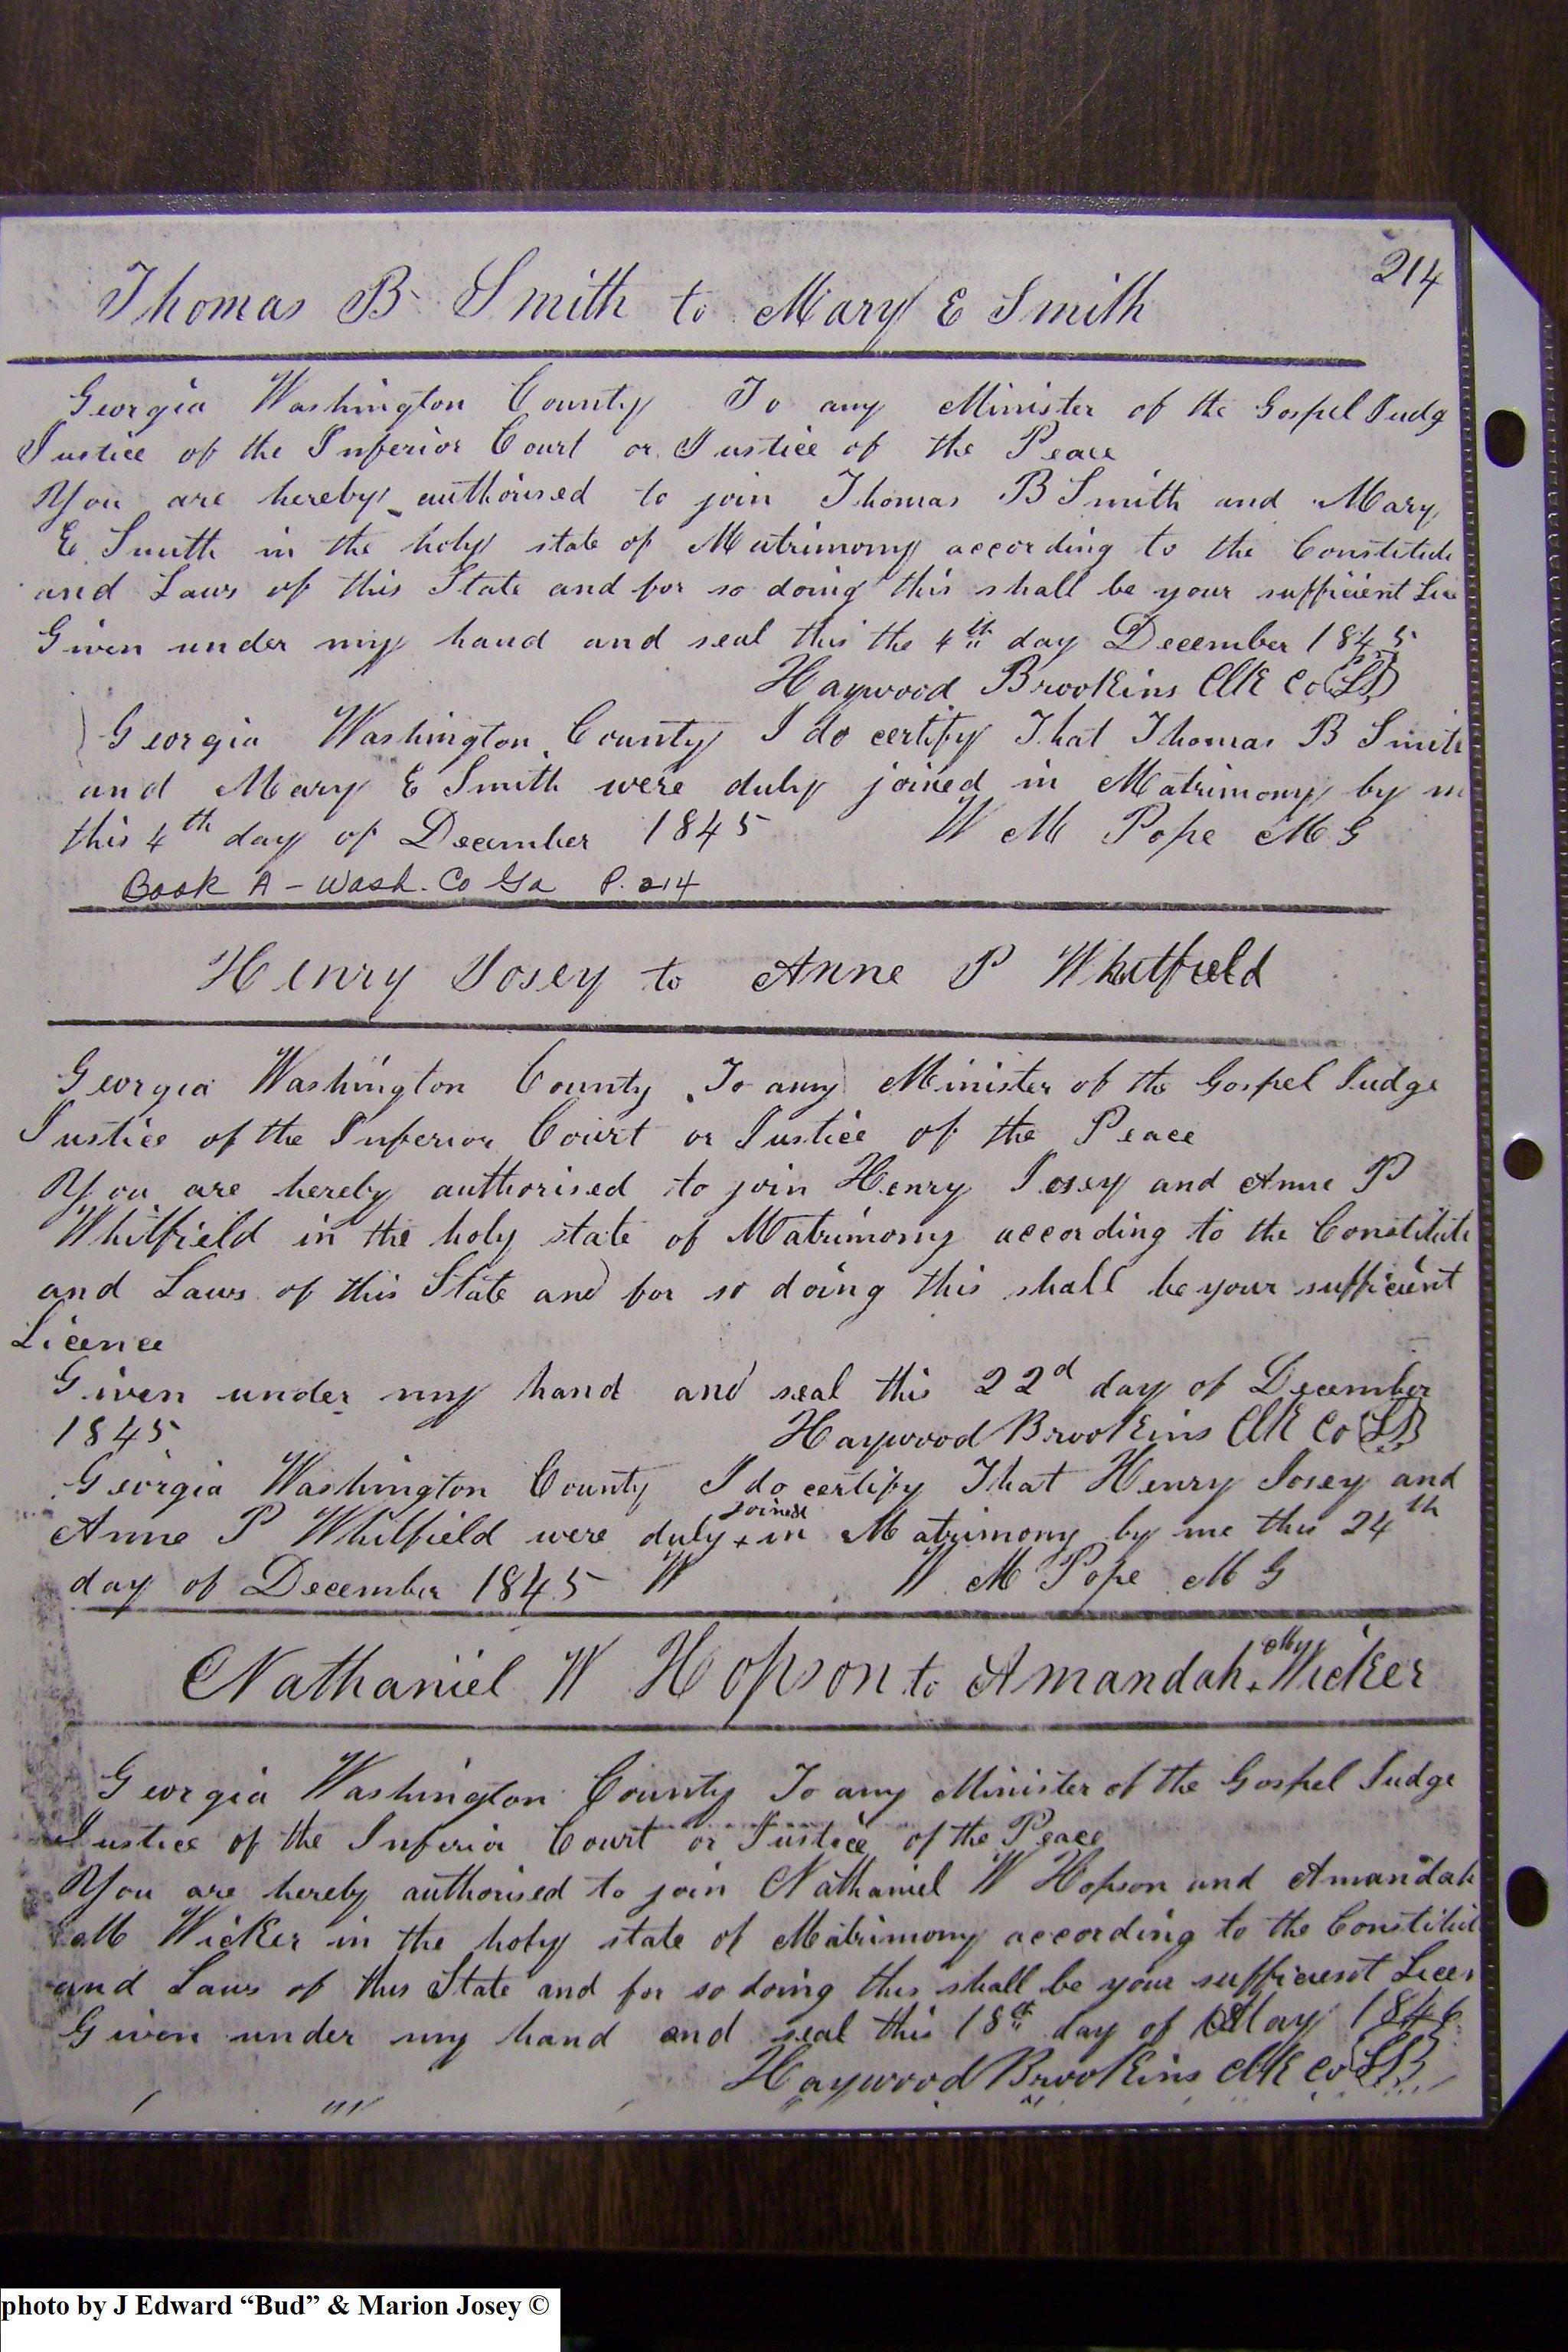 214
Thomas B Smith to Mary E Smith
Georgia Washington County To any Minister of the Gospel Judg
Justice of the Inferior Court or Justice of the Peace
You are hereby authorised to join Thomas B Smith and Mary
E Smith in the holy state of Matrimony according to the Constituti
and Laws of this State and for so doing this shall be your sufficient Lice
Given under my hand and seal this the 4th day December 1845
Haywood Brookins Clk Co (LS)
Georgia Washington County I do certify That Thomas B Smith
and Mary E Smith were duly joined in Matrimony by m
this 4th day of December 1845 W M Pope M G
Book A - Wash. Co Ga P. 214
Henry Josey to Anne P Whitfield
Georgia Washington County To any Minister of the Gospel Judge
Justice of the Inferior Court or Justice of the Peace
You are hereby authorised to join Henry Josey and Anne P
Whitfield in the holy state of Matrimony according to the Constituti
and Laws of this State and for so doing this shall be your sufficient
Licence
Given under my hand and seal this 22d day of December
1845 Haywood Brookins Clk Co (LS)
Georgia Washington County I do certify That Henry Josey and
Anne P Whitfield were duly joined in Matrimony by me this 24th
day of December 1845 W W M Pope M G
Nathaniel W Hopson to Amandah M Wicker
Georgia Washington County To any Minister of the Gospel Judge
Justice of the Inferior Court or Justice of the Peace
You are hereby authorised to join Nathaniel W Hopson and Amandah
M Wicker in the holy state of Matrimony according to the Constituti
and Laws of this State and for so doing this shall be your sufficient Licen
Given under my hand and seal this 18th day of May 1846
Haywood Brookins Clk Co (LS)
photo by J Edward “Bud” & Marion Josey ©